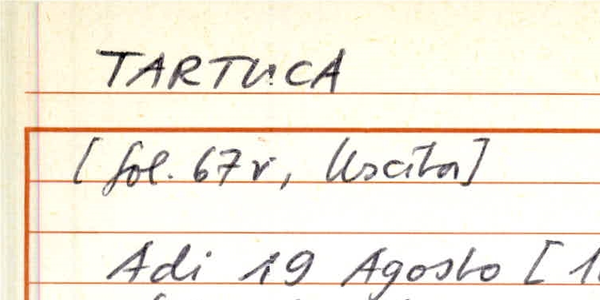 TARTUCA
[fol. 67r, Uscita]
Adi 19 Agosto [1